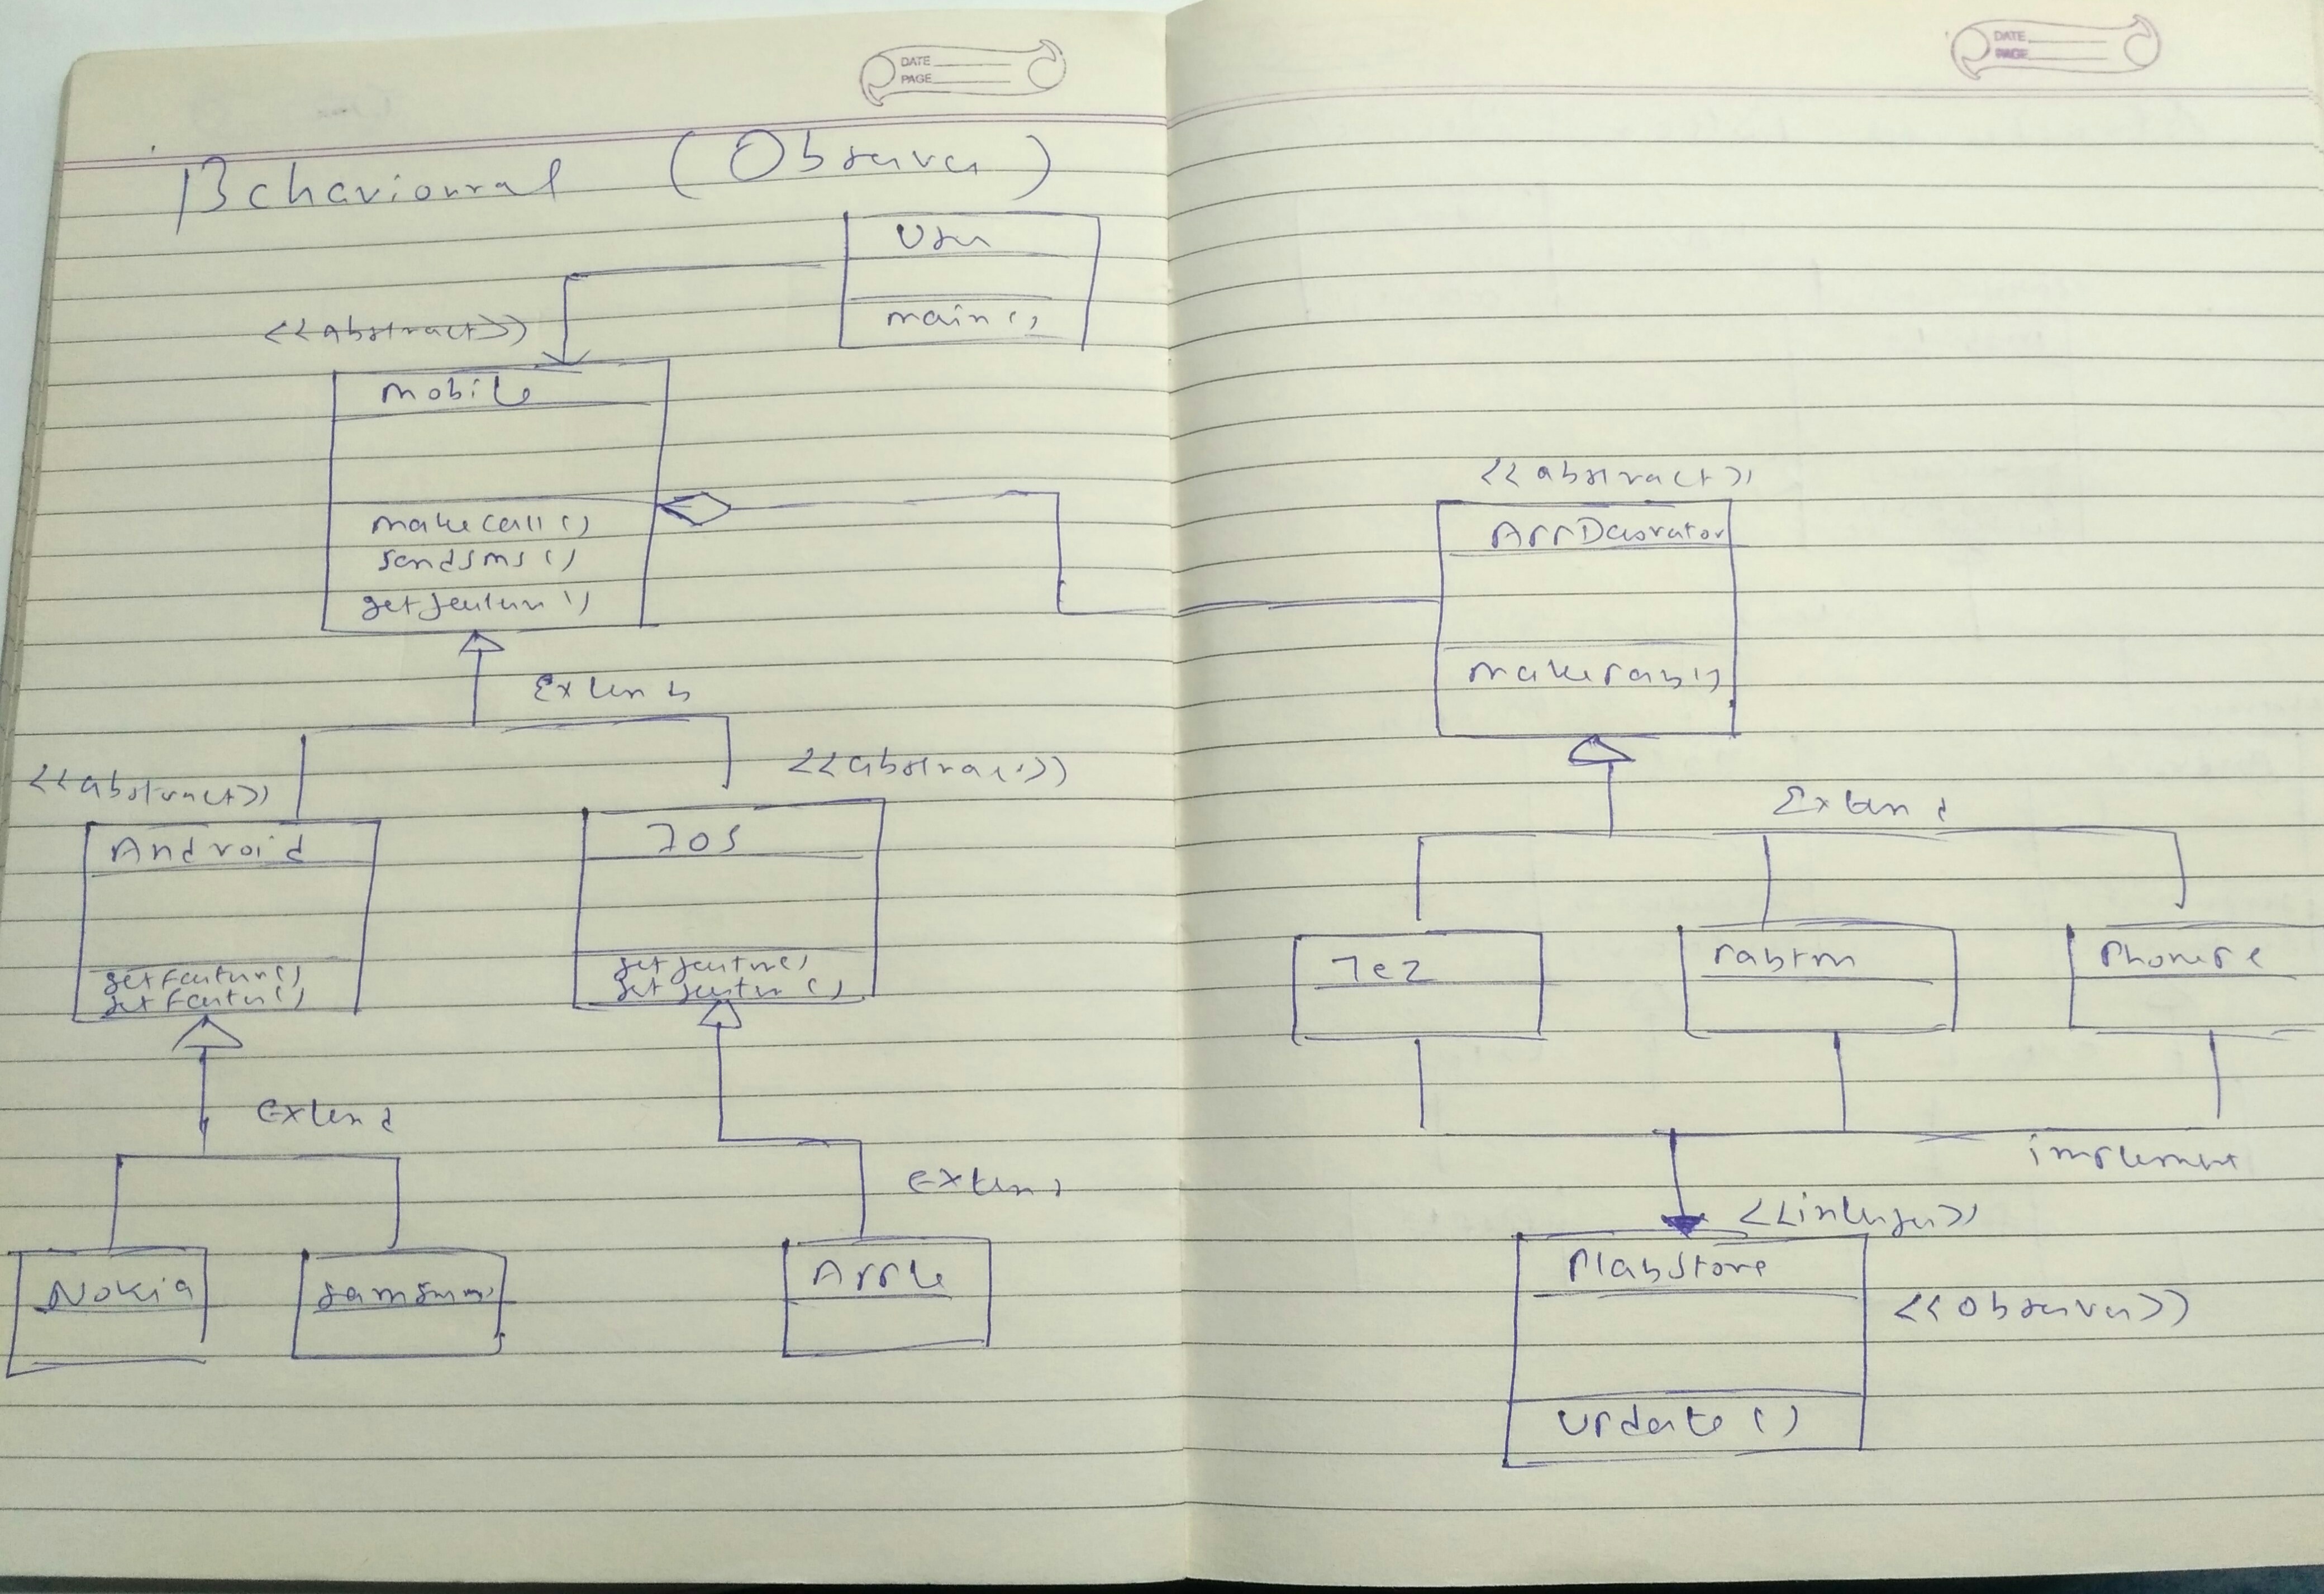 DATE
PAGE
DATE
PAGE
Behavioural (Observer)
User
main()
<<abstract>>
Mobile
makecall()
sendsms()
getfeature()
Extends
<<abstract>>
Android
getFeature()
setFeature()
<<abstract>>
IOS
getfeature()
setfeature()
Extend
Extend
Nokia
Samsung
Apple
<<abstract>>
AppDecorator
makepay()
Extend
Tez
Paytm
PhonePe
implement
<<interface>>
PlayStore
<<Observer>>
Update()